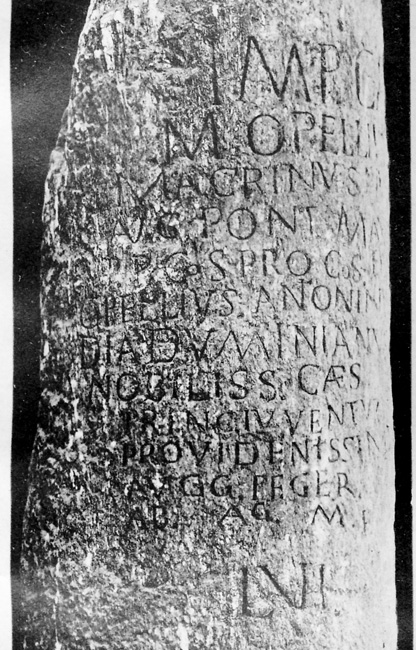 IMP. C
M. OPELLI
MACRINVS
AVG. PONT. MA
P. P. COS PROCOS.
OPELLIVS ANONIN
DIADVMINIANV
NOBILISS. CAES
PRINC IVVENTV
PROVIDENTISSIM
AVGG. FEGER.
AB. AG. M. P
LVI